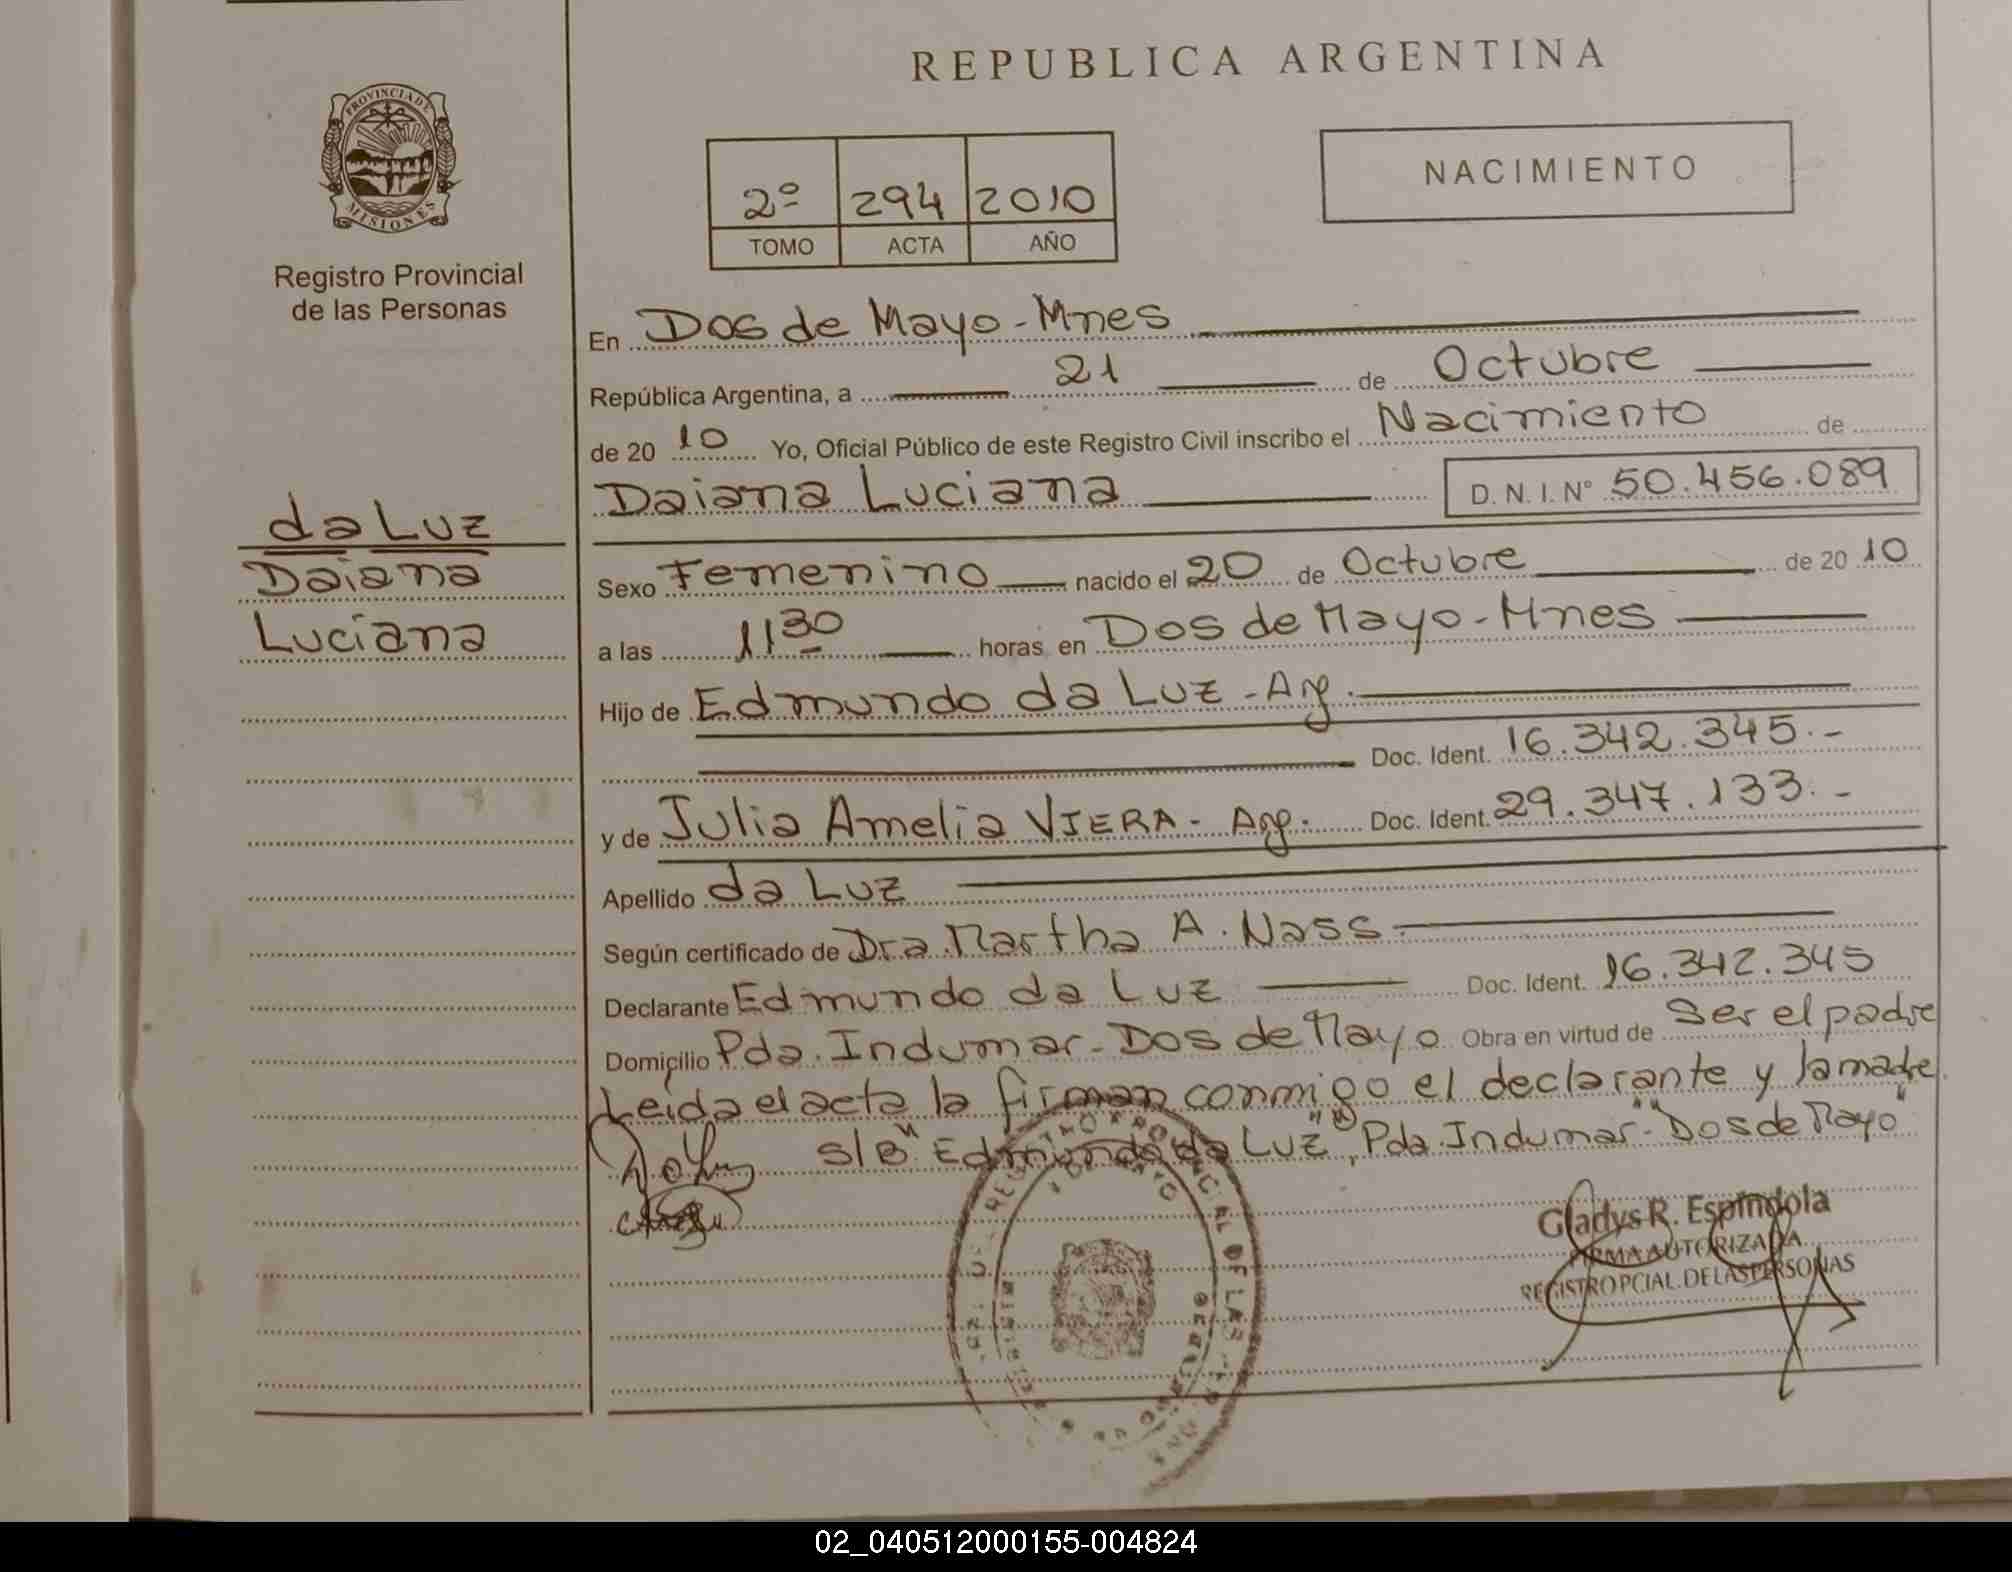 REPUBLICA ARGENTINA
PROVINCIA DE
MISIONES
Registro Provincial
de las Personas
2º 294 2010
TOMO ACTA AÑO
NACIMIENTO
da Luz
Daiana
Luciana
En Dos de Mayo - Mnes
República Argentina, a 21 de Octubre
de 20 10 Yo, Oficial Público de este Registro Civil inscribo el Nacimiento de
Daiana Luciana D. N. I. Nº 50.456.089
Sexo Femenino nacido el 20 de Octubre de 20 10
a las 11 30 horas en Dos de Mayo - Mnes
Hijo de Edmundo da Luz - Arg.
Doc. Ident. 16.342.345.-
y de Julia Amelia VIERA - Arg. Doc. Ident. 29.347.133.-
Apellido da Luz
Según certificado de Dra. Martha A. Nass
Declarante Edmundo da Luz Doc. Ident. 16.342.345
Domicilio Pda. Indumar - Dos de Mayo Obra en virtud de Ser el padre
Leida el acta la firman conmigo el declarante y la madre.
S/B "Edmundo da Luz", Pda. Indumar - "Dos de Mayo"
REGISTRO PROVINCIAL DE LAS
Gladys R. Espindola
FIRMA AUTORIZADA
REGISTRO PCIAL. DE LAS PERSONAS
02_040512000155-004824